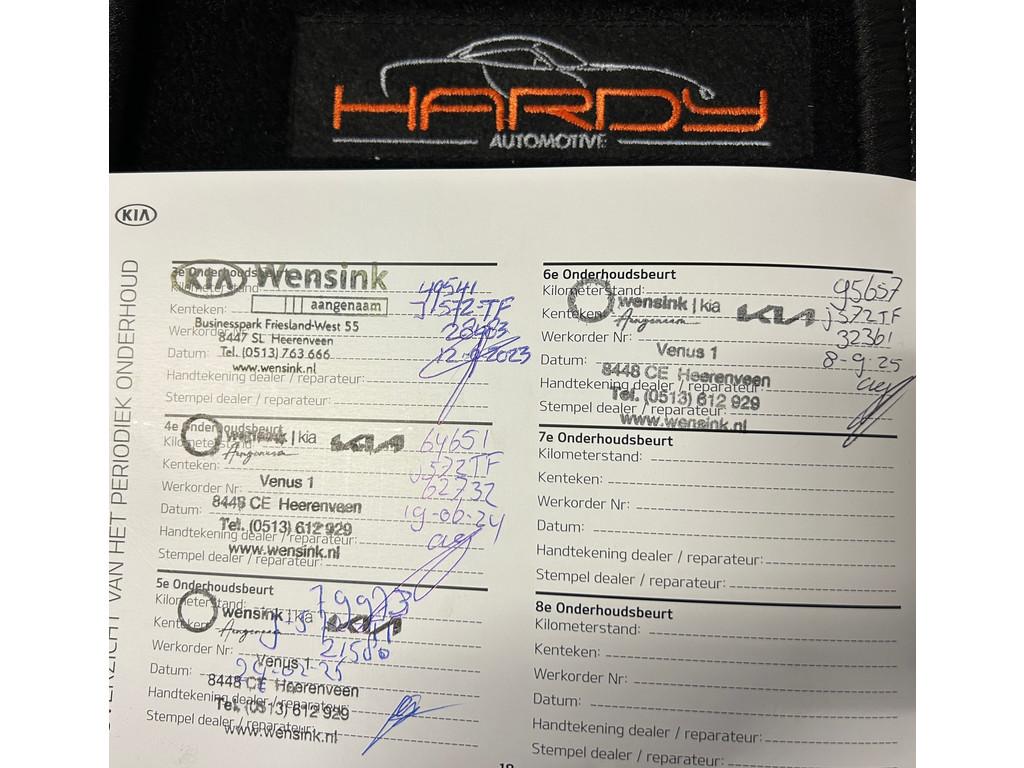 HARDY
AUTOMOTIVE
KIA
OVERZICHT VAN HET PERIODIEK ONDERHOUD
3e Onderhoudsbeurt
KIA Wensink
aangenaam
Businesspark Friesland-West 55
8447 SL Heerenveen
Tel. (0513) 763 666
www.wensink.nl
Kilometerstand: 49541
Kenteken: J-572-TF
Werkorder Nr:
Datum: 12-9-2023
Handtekening dealer / reparateur:
Stempel dealer / reparateur:
4e Onderhoudsbeurt
wensink | kia
Aangenaam
KIA
Venus 1
8448 CE Heerenveen
Tel. (0513) 612 929
www.wensink.nl
Kilometerstand: 64651
Kenteken: J572TF
Werkorder Nr: 62732
Datum: 19-06-24
Handtekening dealer / reparateur:
Stempel dealer / reparateur:
5e Onderhoudsbeurt
wensink | kia
Aangenaam
KIA
Venus 1
8448 CE Heerenveen
Tel. (0513) 612 929
www.wensink.nl
Kilometerstand: 79973
Kenteken:
Werkorder Nr: 21580
Datum: 24-02-25
Handtekening dealer / reparateur:
Stempel dealer / reparateur:
6e Onderhoudsbeurt
wensink | kia
Aangenaam
KIA
Venus 1
8448 CE Heerenveen
Tel. (0513) 612 929
www.wensink.nl
Kilometerstand: 95657
Kenteken: J572TF
Werkorder Nr: 32361
Datum: 8-9-25
Handtekening dealer / reparateur:
Stempel dealer / reparateur:
7e Onderhoudsbeurt
Kilometerstand:
Kenteken:
Werkorder Nr:
Datum:
Handtekening dealer / reparateur:
Stempel dealer / reparateur:
8e Onderhoudsbeurt
Kilometerstand:
Kenteken:
Werkorder Nr:
Datum:
Handtekening dealer / reparateur:
Stempel dealer / reparateur: